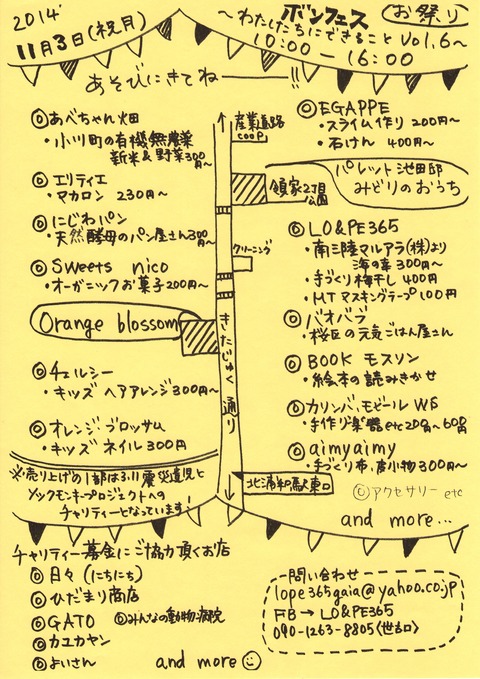 2014'
11月3日(祝月)
ボンフェス お祭り
〜わたしたちにできること Vol.6〜
10:00 — 16:00
あそびにきてね——!!
◎あべちゃん畑
・小川町の有機無農薬
新米&野菜300円〜
◎エリティエ
・マカロン 230円〜
◎にじわパン
・天然酵母のパン屋さん300円〜
◎Sweets nico
・オーガニックお菓子200円〜
Orange blossom
◎チェルシー
・キッズ ヘアアレンジ300円〜
◎オレンジブロッサム
・キッズ ネイル300円
※売り上げの1部は3.11震災遺児と
ソックモンキープロジェクトへの
チャリティーとなっています!
産業道路
COOP
領家2丁目
公園
クリーニング
きたじゅく通り
北浦和駅東口
◎EGAPPE
・スライム作り 200円〜
・石けん 400円〜
パレット池田邸
みどりのおうち
◎LO&PE365
・南三陸マルアラ(株)より
海の幸300円〜
・手づくり梅干し400円
・MTマスキングテープ100円
◎バオバブ
・桜区の元気ごはん屋さん
◎BOOK モスソン
・絵本の読みきかせ
◎カリンバ、モビール WS
・手作り楽器etc 200円〜600円
◎aimyaimy
・手づくり布、皮小物300円〜
◎アクセサリー etc
and more...
チャリティー募金にご協力頂くお店
◎日々(にちにち)
◎ひだまり商店
◎GATO ◎みんなの動物病院
◎カユカヤン
◎よいさん
and more
問い合わせ
lope365gaia@yahoo.co.jp
FB→LO&PE365
090-1263-8805